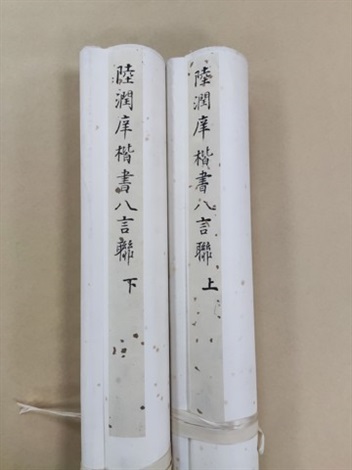 陸潤庠楷書八言聯 上
陸潤庠楷書八言聯 下